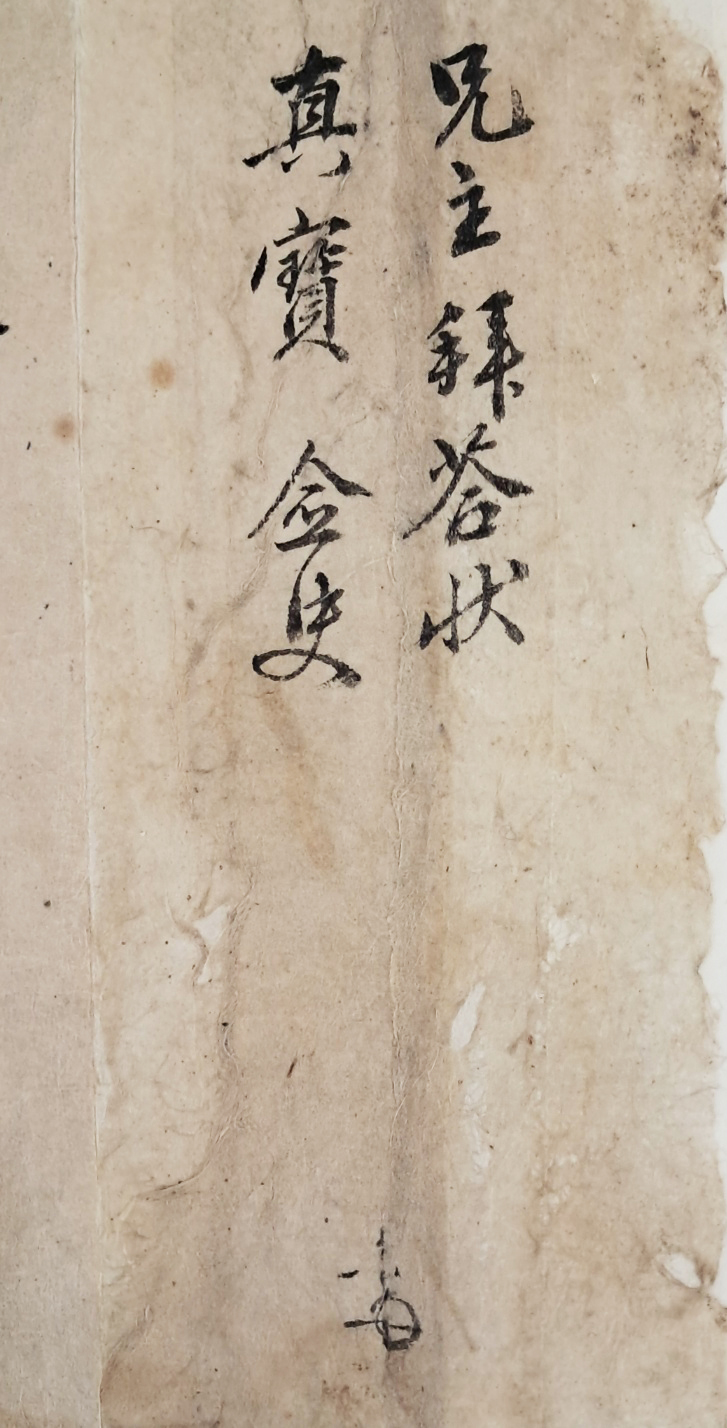 兄主拜答状
真寶 僉史